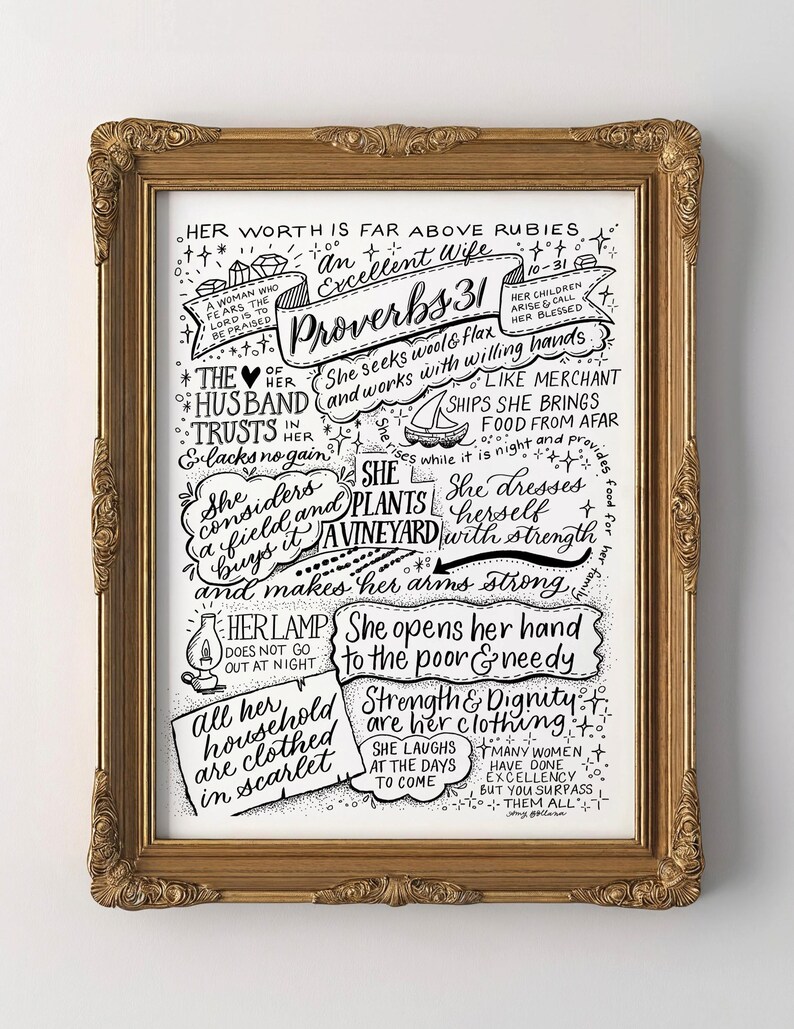 HER WORTH IS FAR ABOVE RUBIES
An
Excellent Wife
10-31
A WOMAN WHO
FEARS THE
LORD IS TO
BE PRAISED
Proverbs 31
HER CHILDREN
ARISE & CALL
HER BLESSED
THE ♥ OF
HER
HUSBAND
TRUSTS IN
HER
& lacks no gain
She seeks wool & flax
and works with willing hands
LIKE MERCHANT
SHIPS SHE BRINGS
FOOD FROM AFAR
She rises while it is night and provides food for her family
She
considers
a field and
buys it
SHE
PLANTS
A VINEYARD
She dresses
herself
with strength
and makes her arms strong
HER LAMP
DOES NOT GO
OUT AT NIGHT
She opens her hand
to the poor & needy
All her
household
are clothed
in scarlet
Strength & Dignity
are her clothing
SHE LAUGHS
AT THE DAYS
TO COME
MANY WOMEN
HAVE DONE
EXCELLENCY
BUT YOU SURPASS
THEM ALL